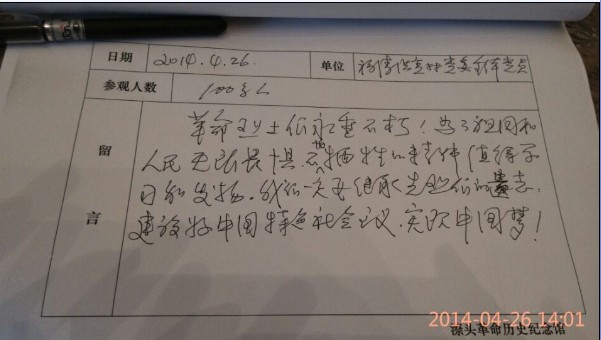 日期 2014.4.26. 单位 支村党委全体党员
参观人数 100多人
留言
革命烈士们永垂不朽！为了祖国和
人民无所畏惧、不怕牺牲的精神值得学
习和发扬。我们一定要继承先烈们的意志，
建设好中国特色社会主义、实现中国梦！
2014-04-26 14:01
深头革命历史纪念馆